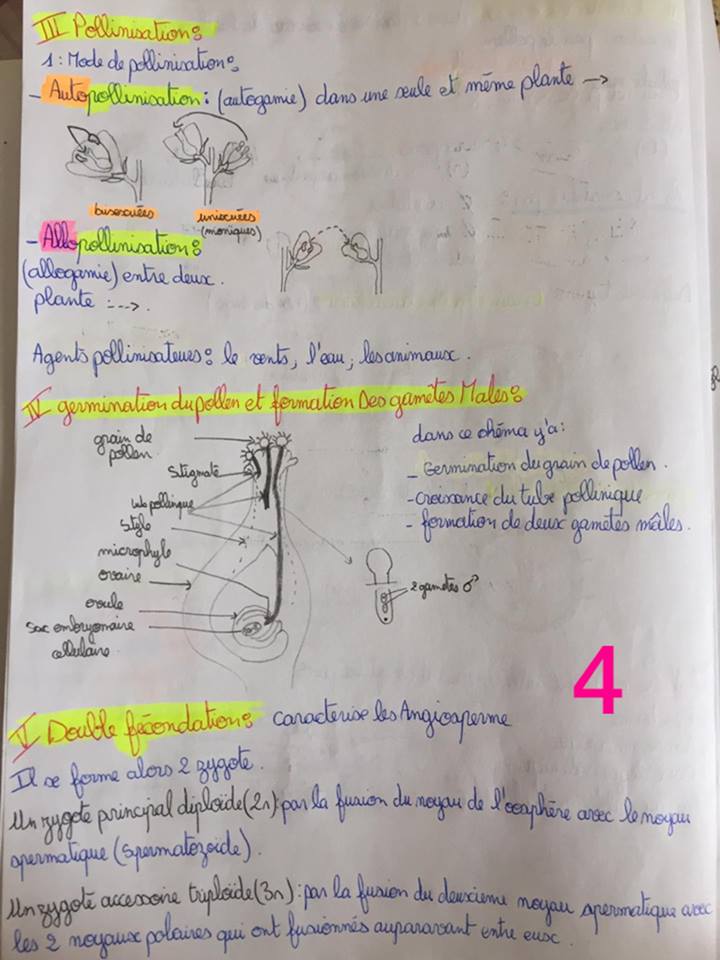 III Pollinisation :
1 : Mode de pollinisation :
- Autopollinisation : (autogamie) dans une seule et même plante →
bisexuées
unisexuées
(moniques)
- Allopollinisation :
(allogamie) entre deux
plante : --->.
Agents pollinisateurs : le vents, l'eau, les animaux.
IV germination du pollen et formation Des gamètes Males :
grain de
pollen
Stigmate
tube pollinique
Style
microphyle
ovaire
ovule
Sac embryonnaire
cellulaire
dans ce chéma y'a :
- Germination du grain de pollen.
- Croissance du tube pollinique
- formation de deux gamètes mâles.
2 gamètes ♂
4
V Double fécondation : caracterise les Angiosperme
Il se forme alors 2 zygote.
Un zygote principal diploïde (2n) : par la fusion du noyau de l'oosphère avec le noyau
spermatique (spermatozoïde).
Un zygote accessoire triploïde (3n) : par la fusion du deuxieme noyau spermatique avec
les 2 noyaux polaires qui ont fusionnés auparavant entre eux.